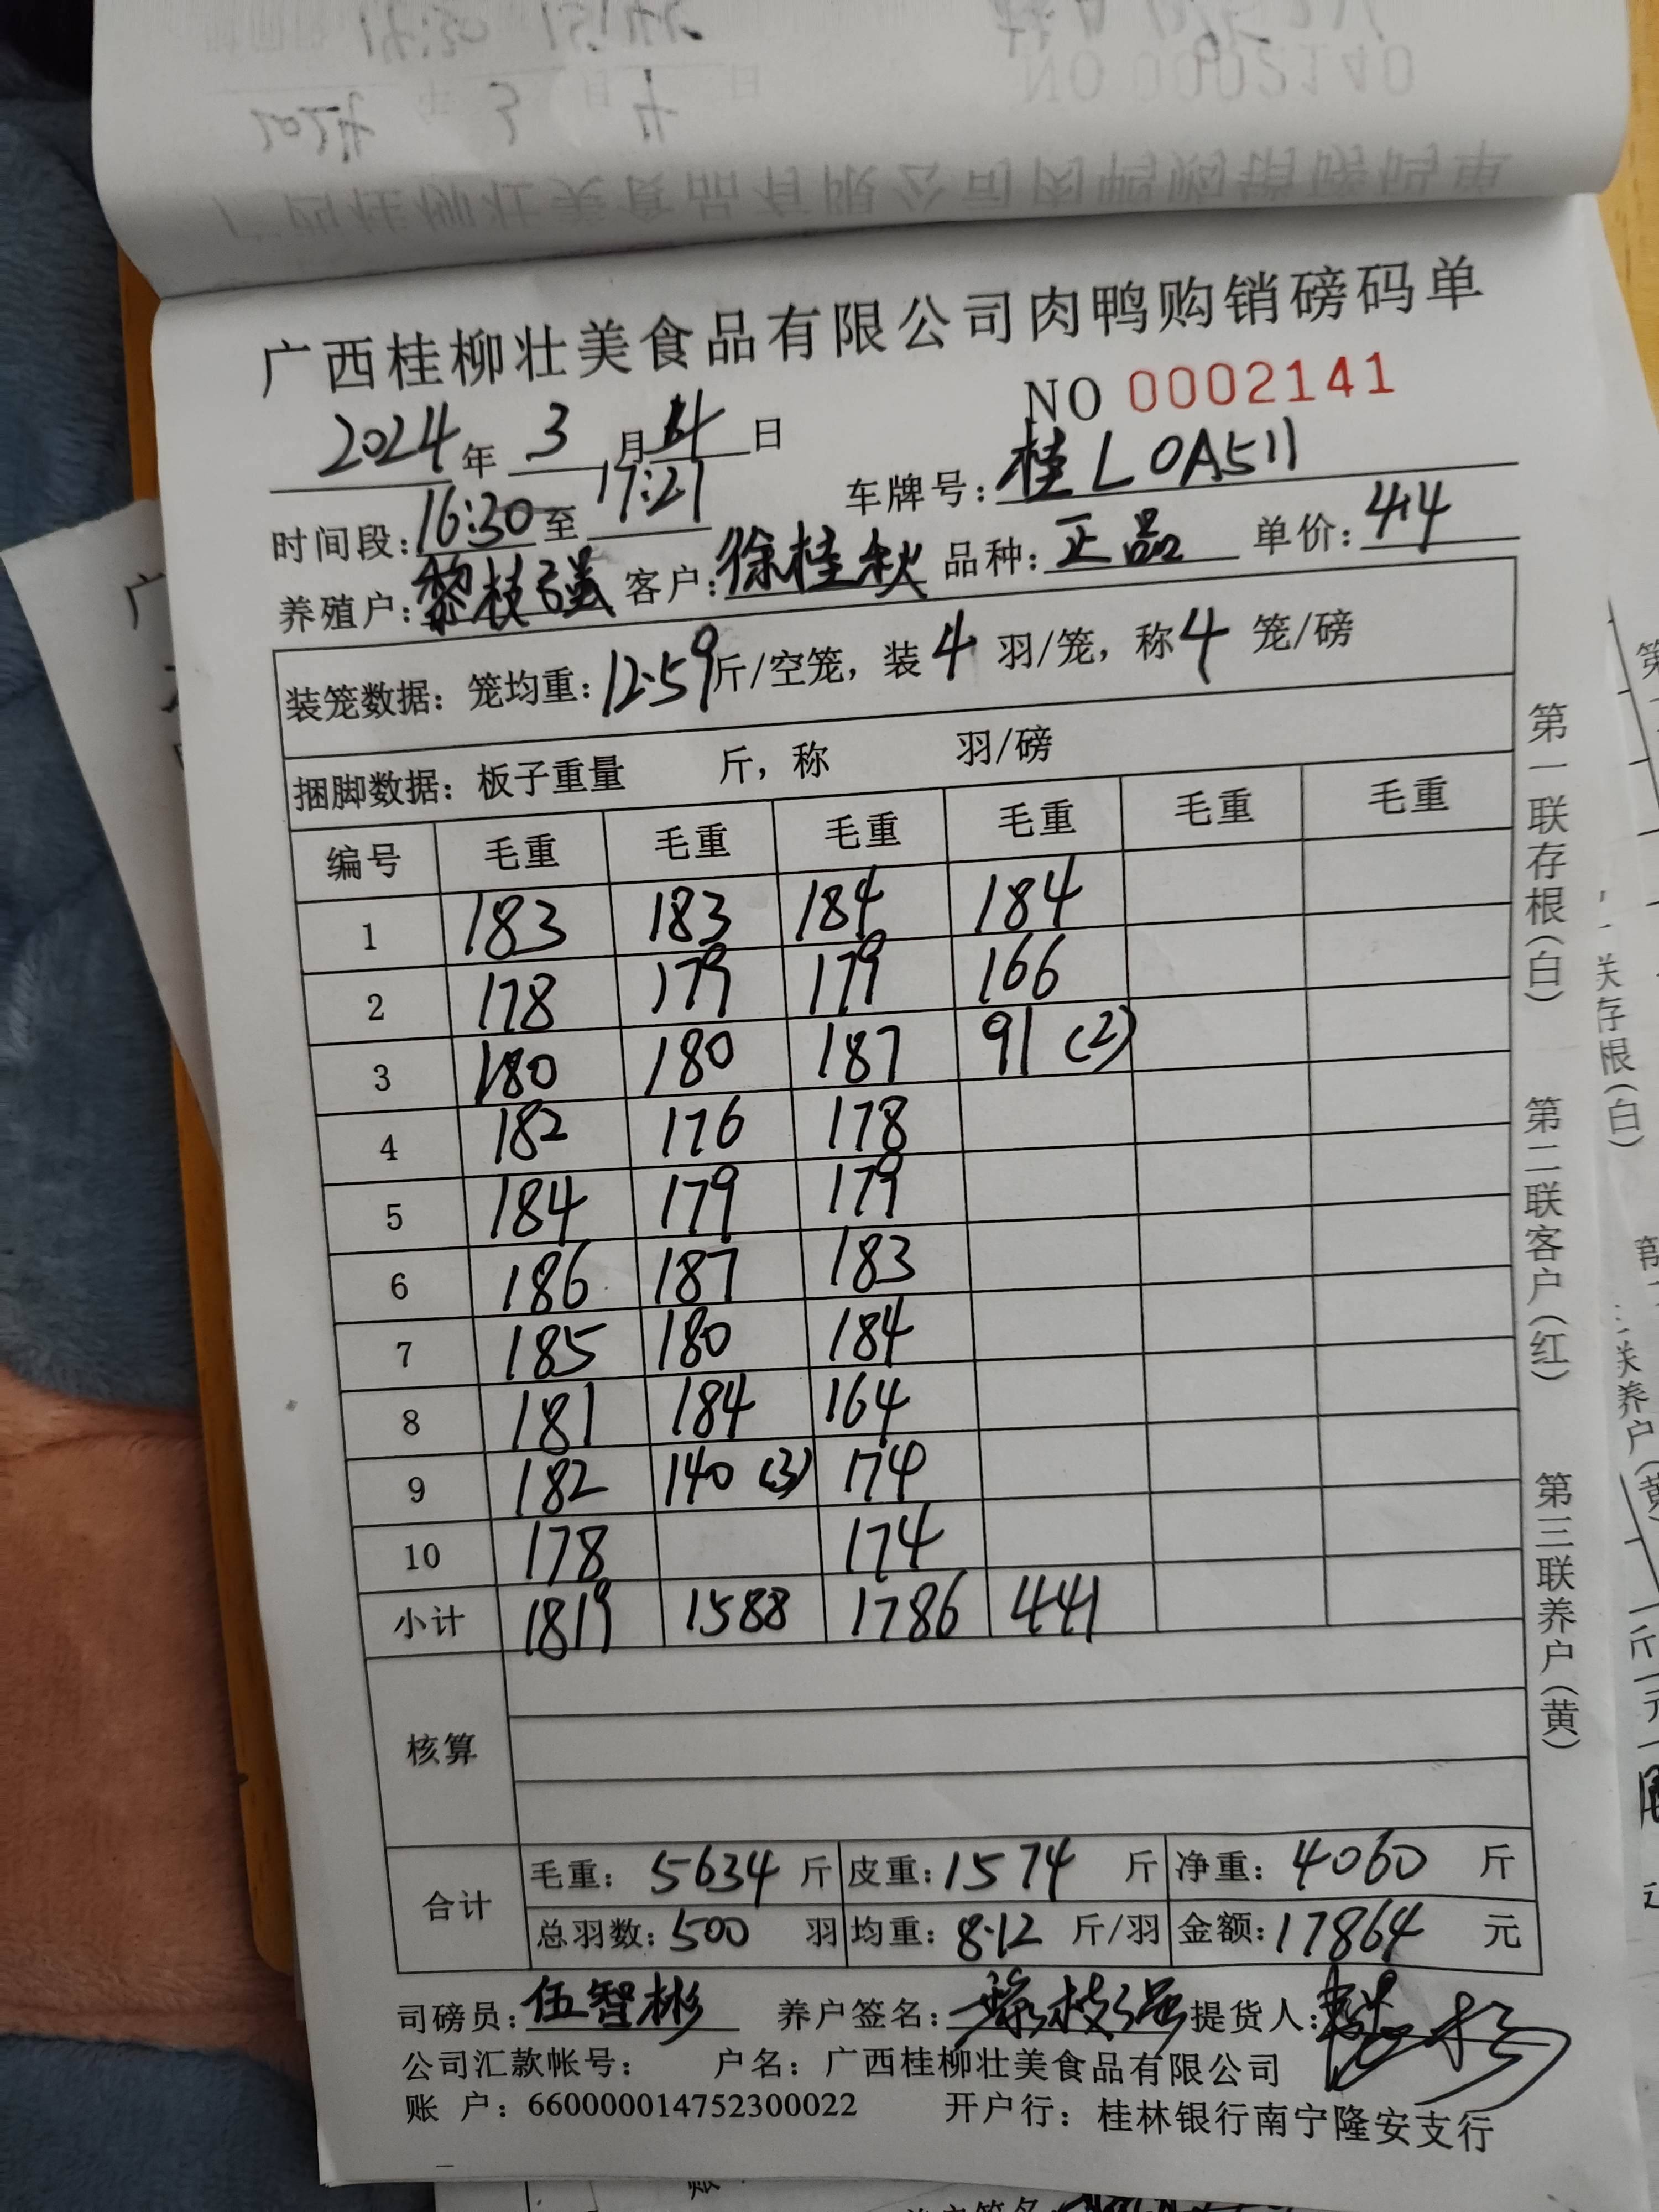 广西桂柳壮美食品有限公司肉鸭购销磅码单
NO 0002141
2024年 3 月 4 日
时间段:16:30至 17:21 车牌号:桂L0A511
养殖户:黎枝强 客户:徐桂秋 品种:正品 单价:4.4
装笼数据:笼均重:12.59斤/空笼,装 4 羽/笼,称 4 笼/磅
捆脚数据:板子重量 斤,称 羽/磅
编号 毛重 毛重 毛重 毛重 毛重 毛重
1 183 183 184 184
2 178 179 179 166
3 180 180 187 91 (2)
4 182 176 178
5 184 179 179
6 186 187 183
7 185 180 184
8 181 184 164
9 182 140 (3) 174
10 178 174
小计 1819 1588 1786 441
核算
合计
毛重: 5634 斤 皮重:1574 斤 净重: 4060 斤
总羽数:500 羽 均重: 8.12 斤/羽 金额:17864 元
司磅员:伍智彬 养户签名:黎枝强 提货人:
公司汇款帐号: 户名:广西桂柳壮美食品有限公司
账 户:660000014752300022 开户行:桂林银行南宁隆安支行
第一联存根(白)
第二联客户(红)
第三联养户(黄)